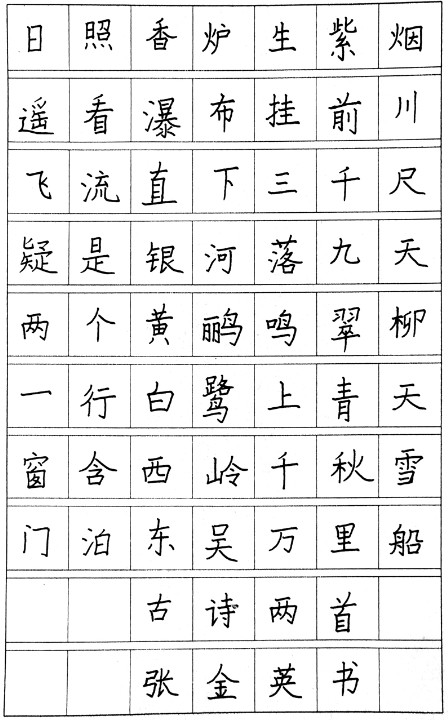 日照香炉生紫烟
遥看瀑布挂前川
飞流直下三千尺
疑是银河落九天
两个黄鹂鸣翠柳
一行白鹭上青天
窗含西岭千秋雪
门泊东吴万里船
古诗两首
张金英书